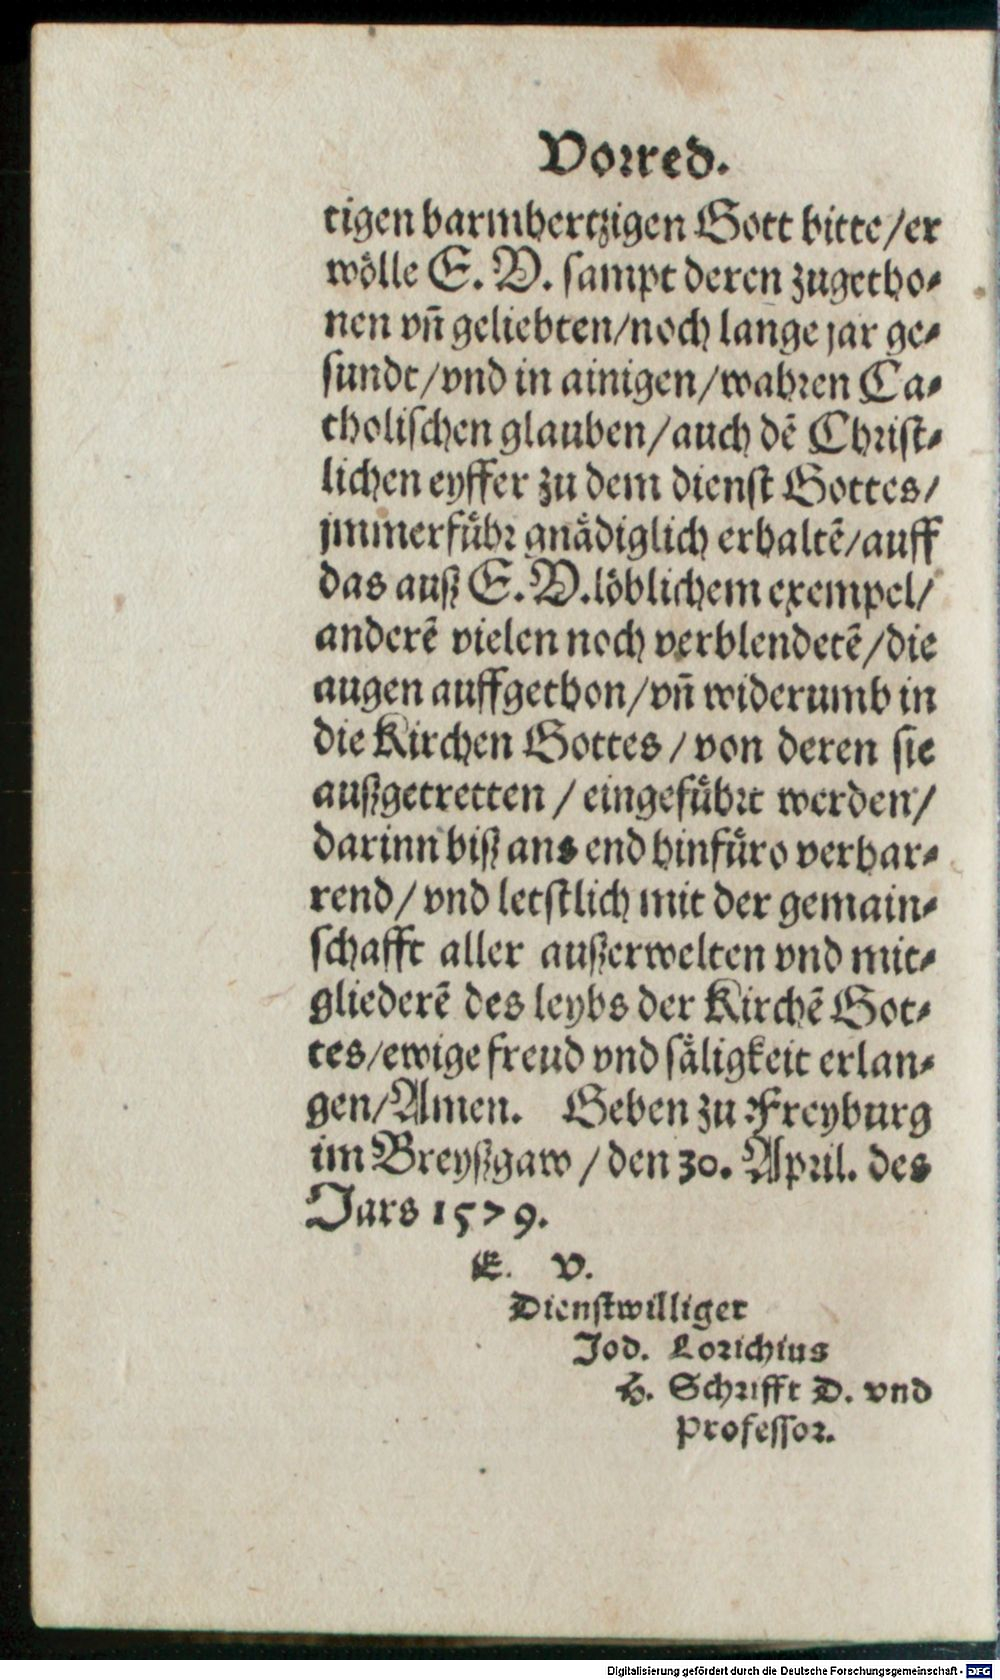 Vorred.
tigen barmhertzigen Gott bitte/er
wölle E. V. sampt deren zugetho-
nen vñ geliebten/noch lange jar ge-
sundt/vnd in ainigen/wahren Ca-
tholischen glauben/auch dẽ Christ-
lichen eyffer zu dem dienst Gottes/
jmmerführ gnädiglich erhaltẽ/auff
das auß E. V. löblichem exempel/
anderẽ vielen noch verblendetẽ/die
augen auffgethon/vñ widerumb in
die Kirchen Gottes / von deren sie
außgetretten / eingeführt werden/
darinn biß ans end hinfüro verhar-
rend/ vnd letstlich mit der gemain-
schafft aller außerwelten vnd mit-
gliederẽ des leybs der Kirchẽ Got-
tes/ewige freud vnd säligkeit erlan-
gen/Amen. Geben zu Freyburg
im Breyßgaw / den 30. April. des
Jars 1579.
E. V.
Dienstwilliger
Jod. Lorichius
H. Schrifft D. vnd
Professor.
Digitalisierung gefördert durch die Deutsche Forschungsgemeinschaft - DFG